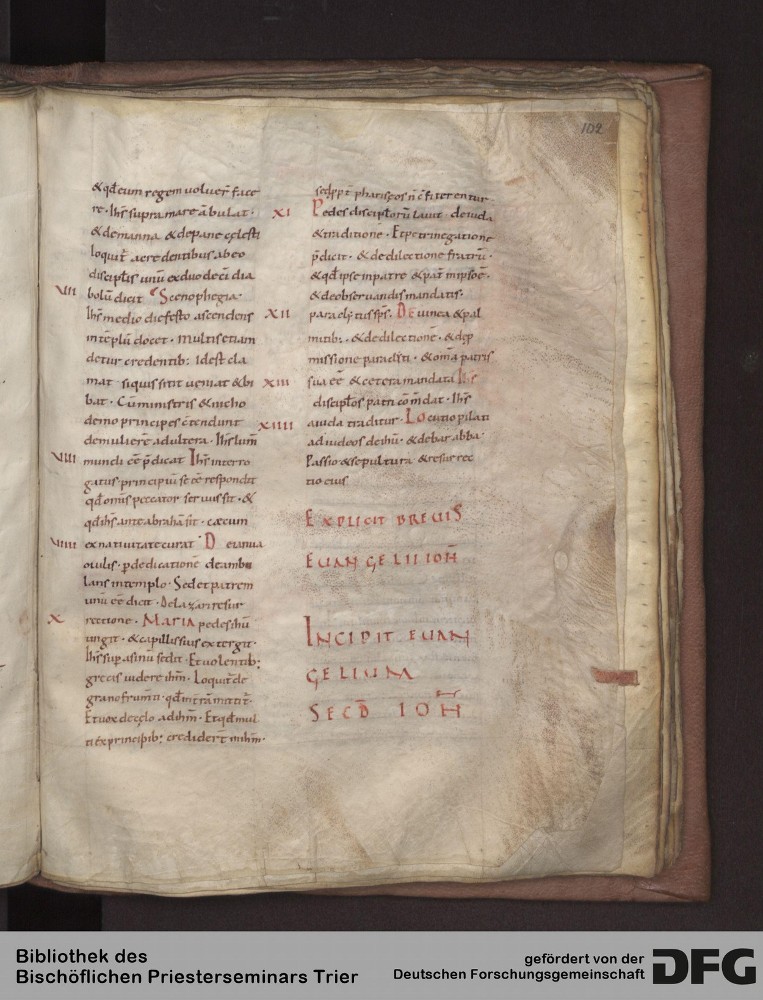 102
&qđ eum regem voluer̄ face
re · Ih̄s supra mare ābulat ·
& de manna & de pane cęlesti
loquit̄ a credentibus ab eo
discipl̄is unū ex duodecī dia
VIII bolū dicit Scenophegia ·
Ih̄s medio die festo ascendens
in tēplū docet · multis etiam
detur credentib: Id est cla
mat · si quis sitit veniat & bi
bat · Cū ministris & nicho
demo principes c̄tendunt
de muliere adultera · Ih̄s lum̄
VIIII mundi eē p̄dicat Ih̄s interro
gatus principiū se eē respondit
qđ omnis peccator servus sit · &
qđ ih̄s ante abrahā sit · cæcum
VIIII ex nativitate curat De ianua
ovilis · p̄ dedicatione deambu
lans in templo · Sed et patrem
unū eē dicit · De lazari resur
X rectione · Maria pedes ih̄u
ungit · & capillis suis extergit ·
Ih̄s sup̄ asinū sedit · Et volentib:
grecis videre ih̄m · Loquit̄ de
grano frum̄ti · qđ in terā mittit̄ ·
Et vox de cęlo ad ih̄m · Et qđ mul
ti ex principib: credider̄t in ih̄m ·
sed ppt̄ phariseos n̄ c̄fiterentur
XI Pedes discipl̄orū lavit de iuda
& traditione · Et petri negatione
p̄dicit · & de dilectione fratrū ·
& qđ ipse in patre & pat̄ in ipso ē ·
& de observandis mandatis ·
XII paraclitus sp̄s · De vinea & pal
mitib: · & de dilectione · & de p̄
missione paracliti · & om̄a patris
XIII sua eē & cetera mandata Ih̄s
discipl̄os patri cōm̄dat · Ih̄s
XIIII a iuda traditur · Locutio pilati
ad iudeos de ih̄u · & de barabba ·
Passio & sepultura & resurrec
tio eius
EXPLICIT BREUIS
EUANGELII IOH̄
INCIPIT EUAN
GELIUM
SECD̄ IOH̄
Bibliothek des
Bischöflichen Priesterseminars Trier
gefördert von der
Deutschen Forschungsgemeinschaft
DFG